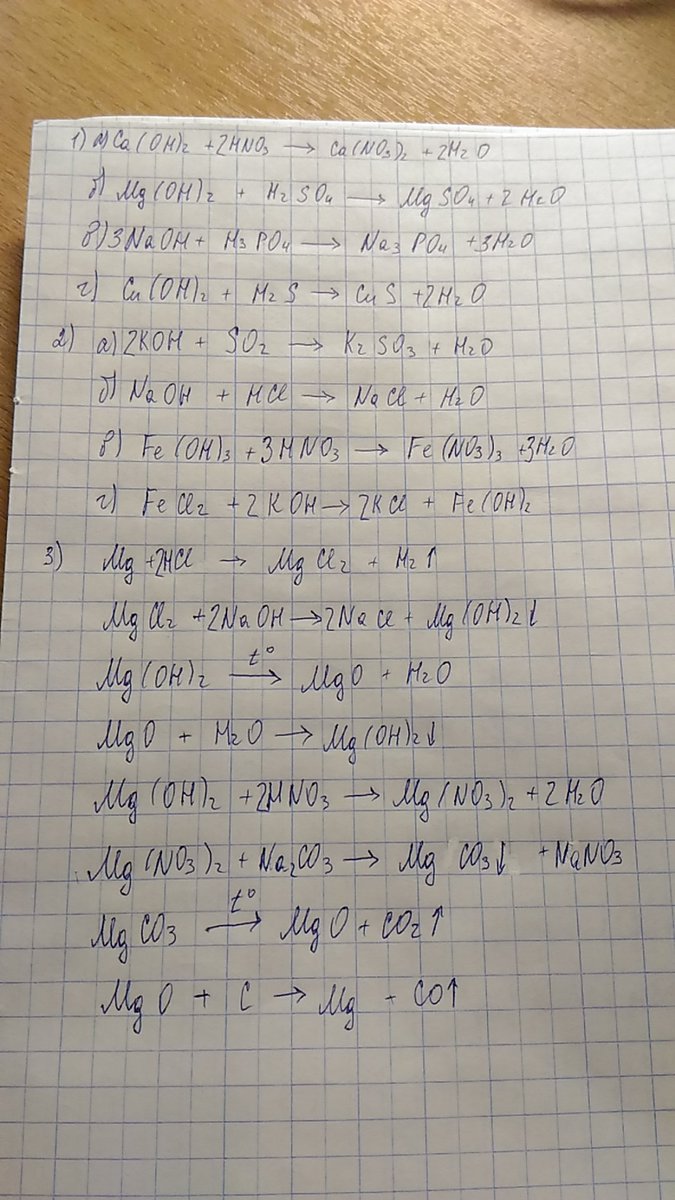 1) а) Ca(OH)2 + 2HNO3 → Ca(NO3)2 + 2H2O
б) Mg(OH)2 + H2SO4 → MgSO4 + 2H2O
в) 3NaOH + H3PO4 → Na3PO4 + 3H2O
г) Cu(OH)2 + H2S → CuS + 2H2O
2) а) 2KOH + SO2 → K2SO3 + H2O
б) NaOH + HCl → NaCl + H2O
в) Fe(OH)3 + 3HNO3 → Fe(NO3)3 + 3H2O
г) FeCl2 + 2KOH → 2KCl + Fe(OH)2
3) Mg + 2HCl → MgCl2 + H2↑
MgCl2 + 2NaOH → 2NaCl + Mg(OH)2↓
Mg(OH)2 t°→ MgO + H2O
MgO + H2O → Mg(OH)2↓
Mg(OH)2 + 2HNO3 → Mg(NO3)2 + 2H2O
Mg(NO3)2 + Na2CO3 → MgCO3↓ + NaNO3
MgCO3 t°→ MgO + CO2↑
MgO + C → Mg + CO↑